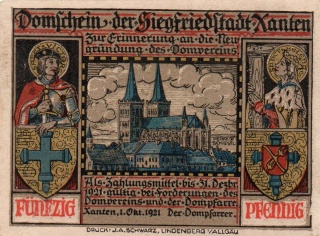 Domschein·der·Siegfriedstadt·Xanten
Zur Erinnerung·an·die Neu
gründung·des·Domvereins
Als·Zahlungsmittel·bis·31.Dezbr.
1921·gültig·bei·Forderungen·des
Domvereins·und·der·Dompfarre.
Xanten,1.Okt.1921 Der·Dompfarrer.
FÜNFZIG
PFENNIG
DRUCK: J.A.SCHWARZ, LINDENBERG I/ALLGÄU